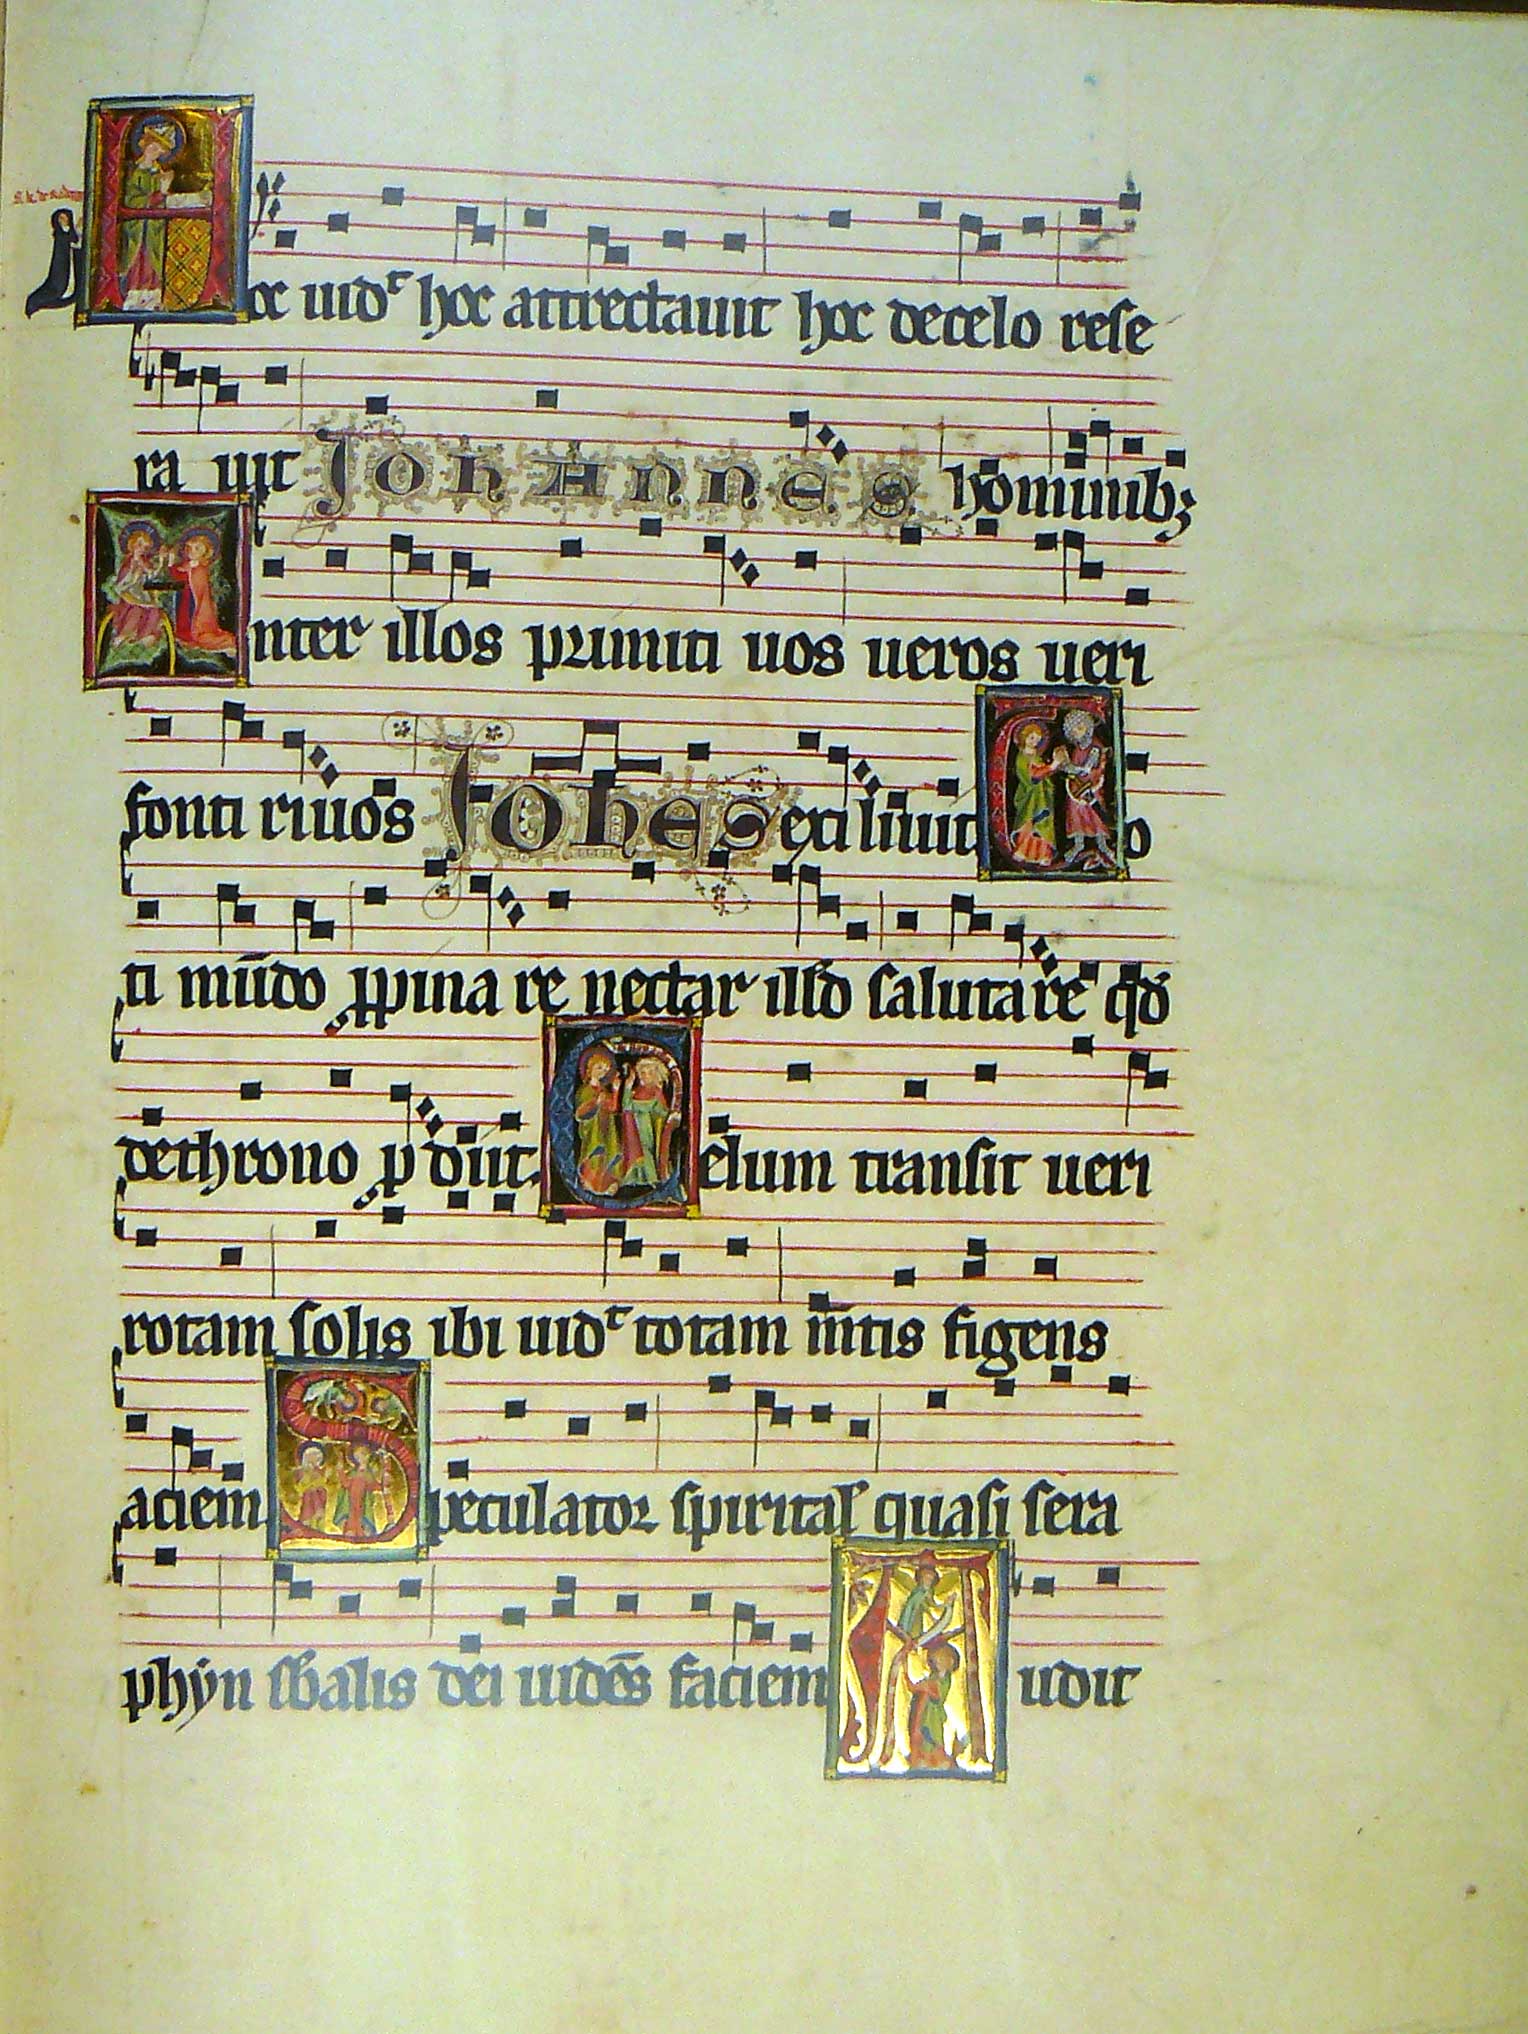 Hoc uidᵗ hoc attrectauit hoc de celo rese
ra uit Johannes hominibꝫ
Inter illos primiti uos ueros ueri
fonti riuos Johes exiliuit To
ti mūdo ꝓpinare nectar illḋ salutare qḋ
de throno ꝓdiit. Celum transit ueri
rotam solis ibi uidᵗ totam m̄tis figens
aciem Speculator spiritał quasi sera
phyn sƀ alis dei uidēs faciem Audit